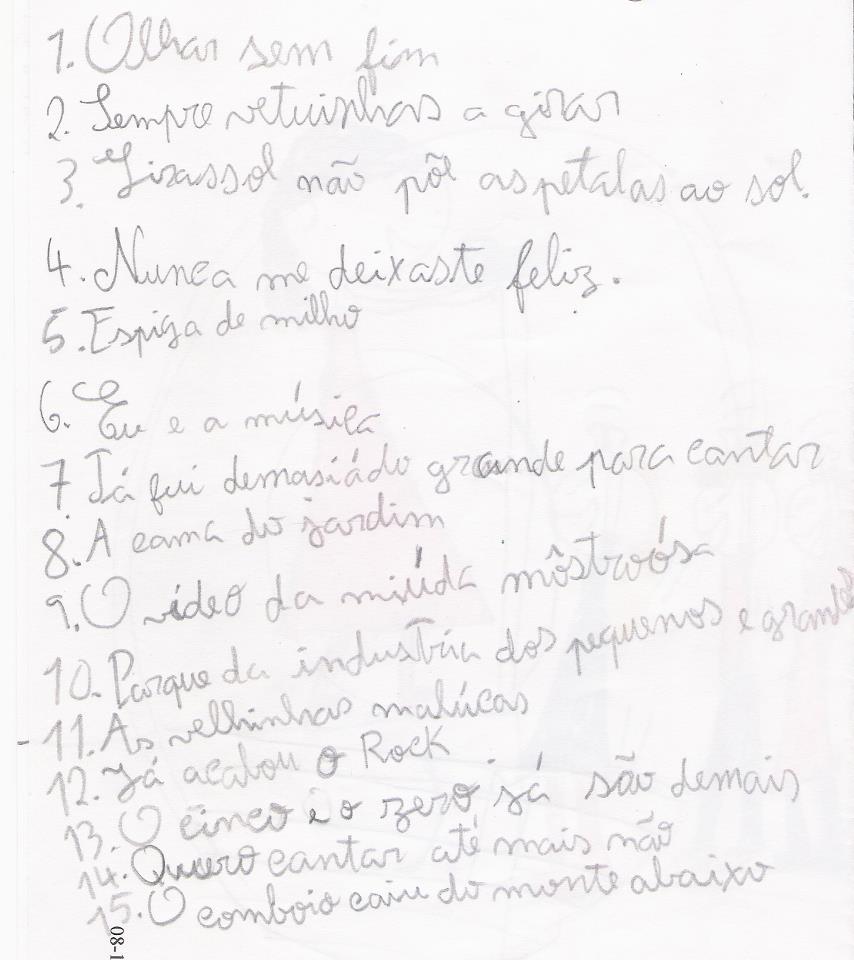 1. Olhar sem fim
2. Sempre vetuinhas a girar
3. Girassol não põe as petalas ao sol.
4. Nunca me deixaste feliz.
5. Espiga de milho
6. Eu e a música
7. Já fui demasiádo grande para cantar
8. A cama do jardim
9. O video da miúda môstroósa
10. Parque da industria dos pequenos e grandes
11. As velhinhas malúcas
12. Já acabou o Rock
13. O cinco e o zero já são demais
14. Quero cantar até mais não
15. O comboio caiu do monte abaixo
08-1